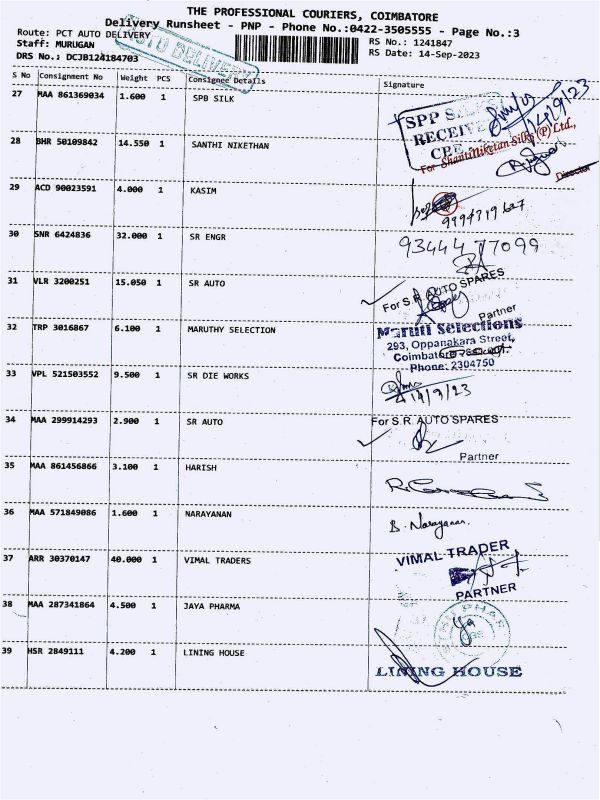 THE PROFESSIONAL COURIERS, COIMBATORE
Delivery Runsheet - PNP - Phone No.:0422-3505555 - Page No.:3
Route: PCT AUTO DELIVERY
AUTO DELIVERY
Staff: MURUGAN
RS No.: 1241847
DRS No.: DCJB124184703
RS Date: 14-Sep-2023
S No Consignment No Weight PCS Consignee Details Signature
27 MAA 861369034 1.600 1 SPB SILK
SPP
RECEIVE
14/9/23
28 BHR 50109842 14.550 1 SANTHI NIKETHAN
For ShantiNiketan Silks (P) Ltd.,
Director
29 ACD 90023591 4.000 1 KASIM
30 SNR 6424836 32.000 1 SR ENGR
31 VLR 3200251 15.050 1 SR AUTO
For S.R. AUTO SPARES
Partner
32 TRP 3016867 6.100 1 MARUTHY SELECTION
Maruti Selections
293, Oppanakara Street,
Phone: 2304750
33 VPL 521503552 9.500 1 SR DIE WORKS
14/9/23
34 MAA 299914293 2.900 1 SR AUTO
For S.R. AUTO SPARES
Partner
35 MAA 861456866 3.100 1 HARISH
36 MAA 571849086 1.600 1 NARAYANAN
B. Narayanan
37 ARR 30370147 40.000 1 VIMAL TRADERS
VIMAL TRADER
PARTNER
38 MAA 287341864 4.500 1 JAYA PHARMA
39 HSR 2849111 4.200 1 LINING HOUSE
LINING HOUSE